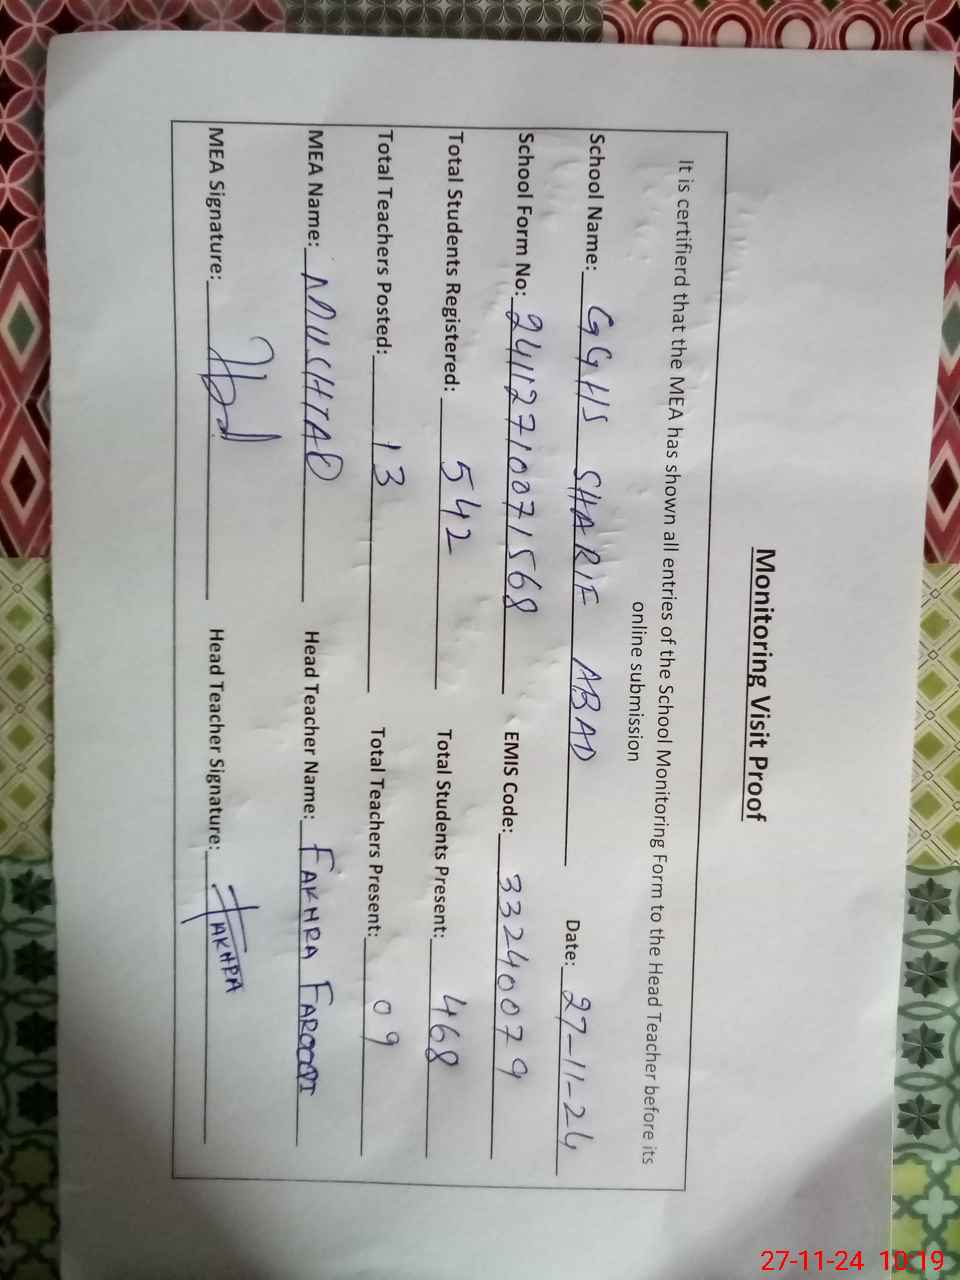 Monitoring Visit Proof
It is certifierd that the MEA has shown all entries of the School Monitoring Form to the Head Teacher before its
online submission
School Name: GGHS SHARIF ABAD Date: 27-11-24
School Form No: 24112710071568 EMIS Code: 33240079
Total Students Registered: 542 Total Students Present: 468
Total Teachers Posted: 13 Total Teachers Present: 09
MEA Name: MUSHTAQ Head Teacher Name: FAKHRA FAROOQI
MEA Signature: Head Teacher Signature: FAKHRA
27-11-24 10:19